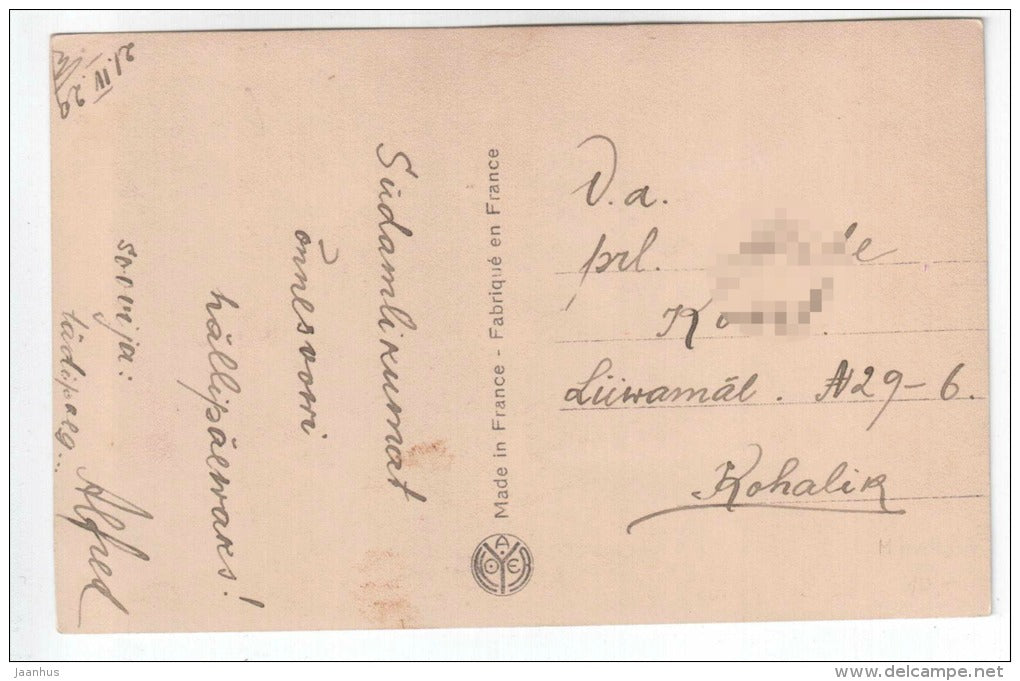 21.IV.29
Südamlikumat
õnnesoowi
hällipäewaks!
soowija:
tädipoeg..
Alfred
Made in France - Fabriqué en France
V.a.
prl.
Liiwamäe. N29-6.
Kohalik
jaanhus
www.delcampe.net